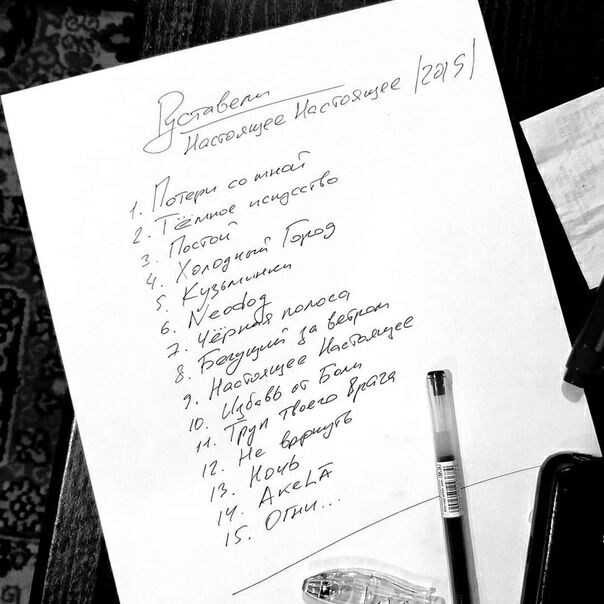 Руставели
Настоящее Настоящее /2015/
1. Потери со мной
2. Тёмное искусство
3. Постой
4. Холодный Город
5. Кузьминки
6. Neodog
7. Чёрная полоса
8. Бегущий за ветром
9. Настоящее Настоящее
10. Избавь от Боли
11. Труп твоего врага
12. Не вернуть
13. Ночь
14. AKeLA
15. Огни...